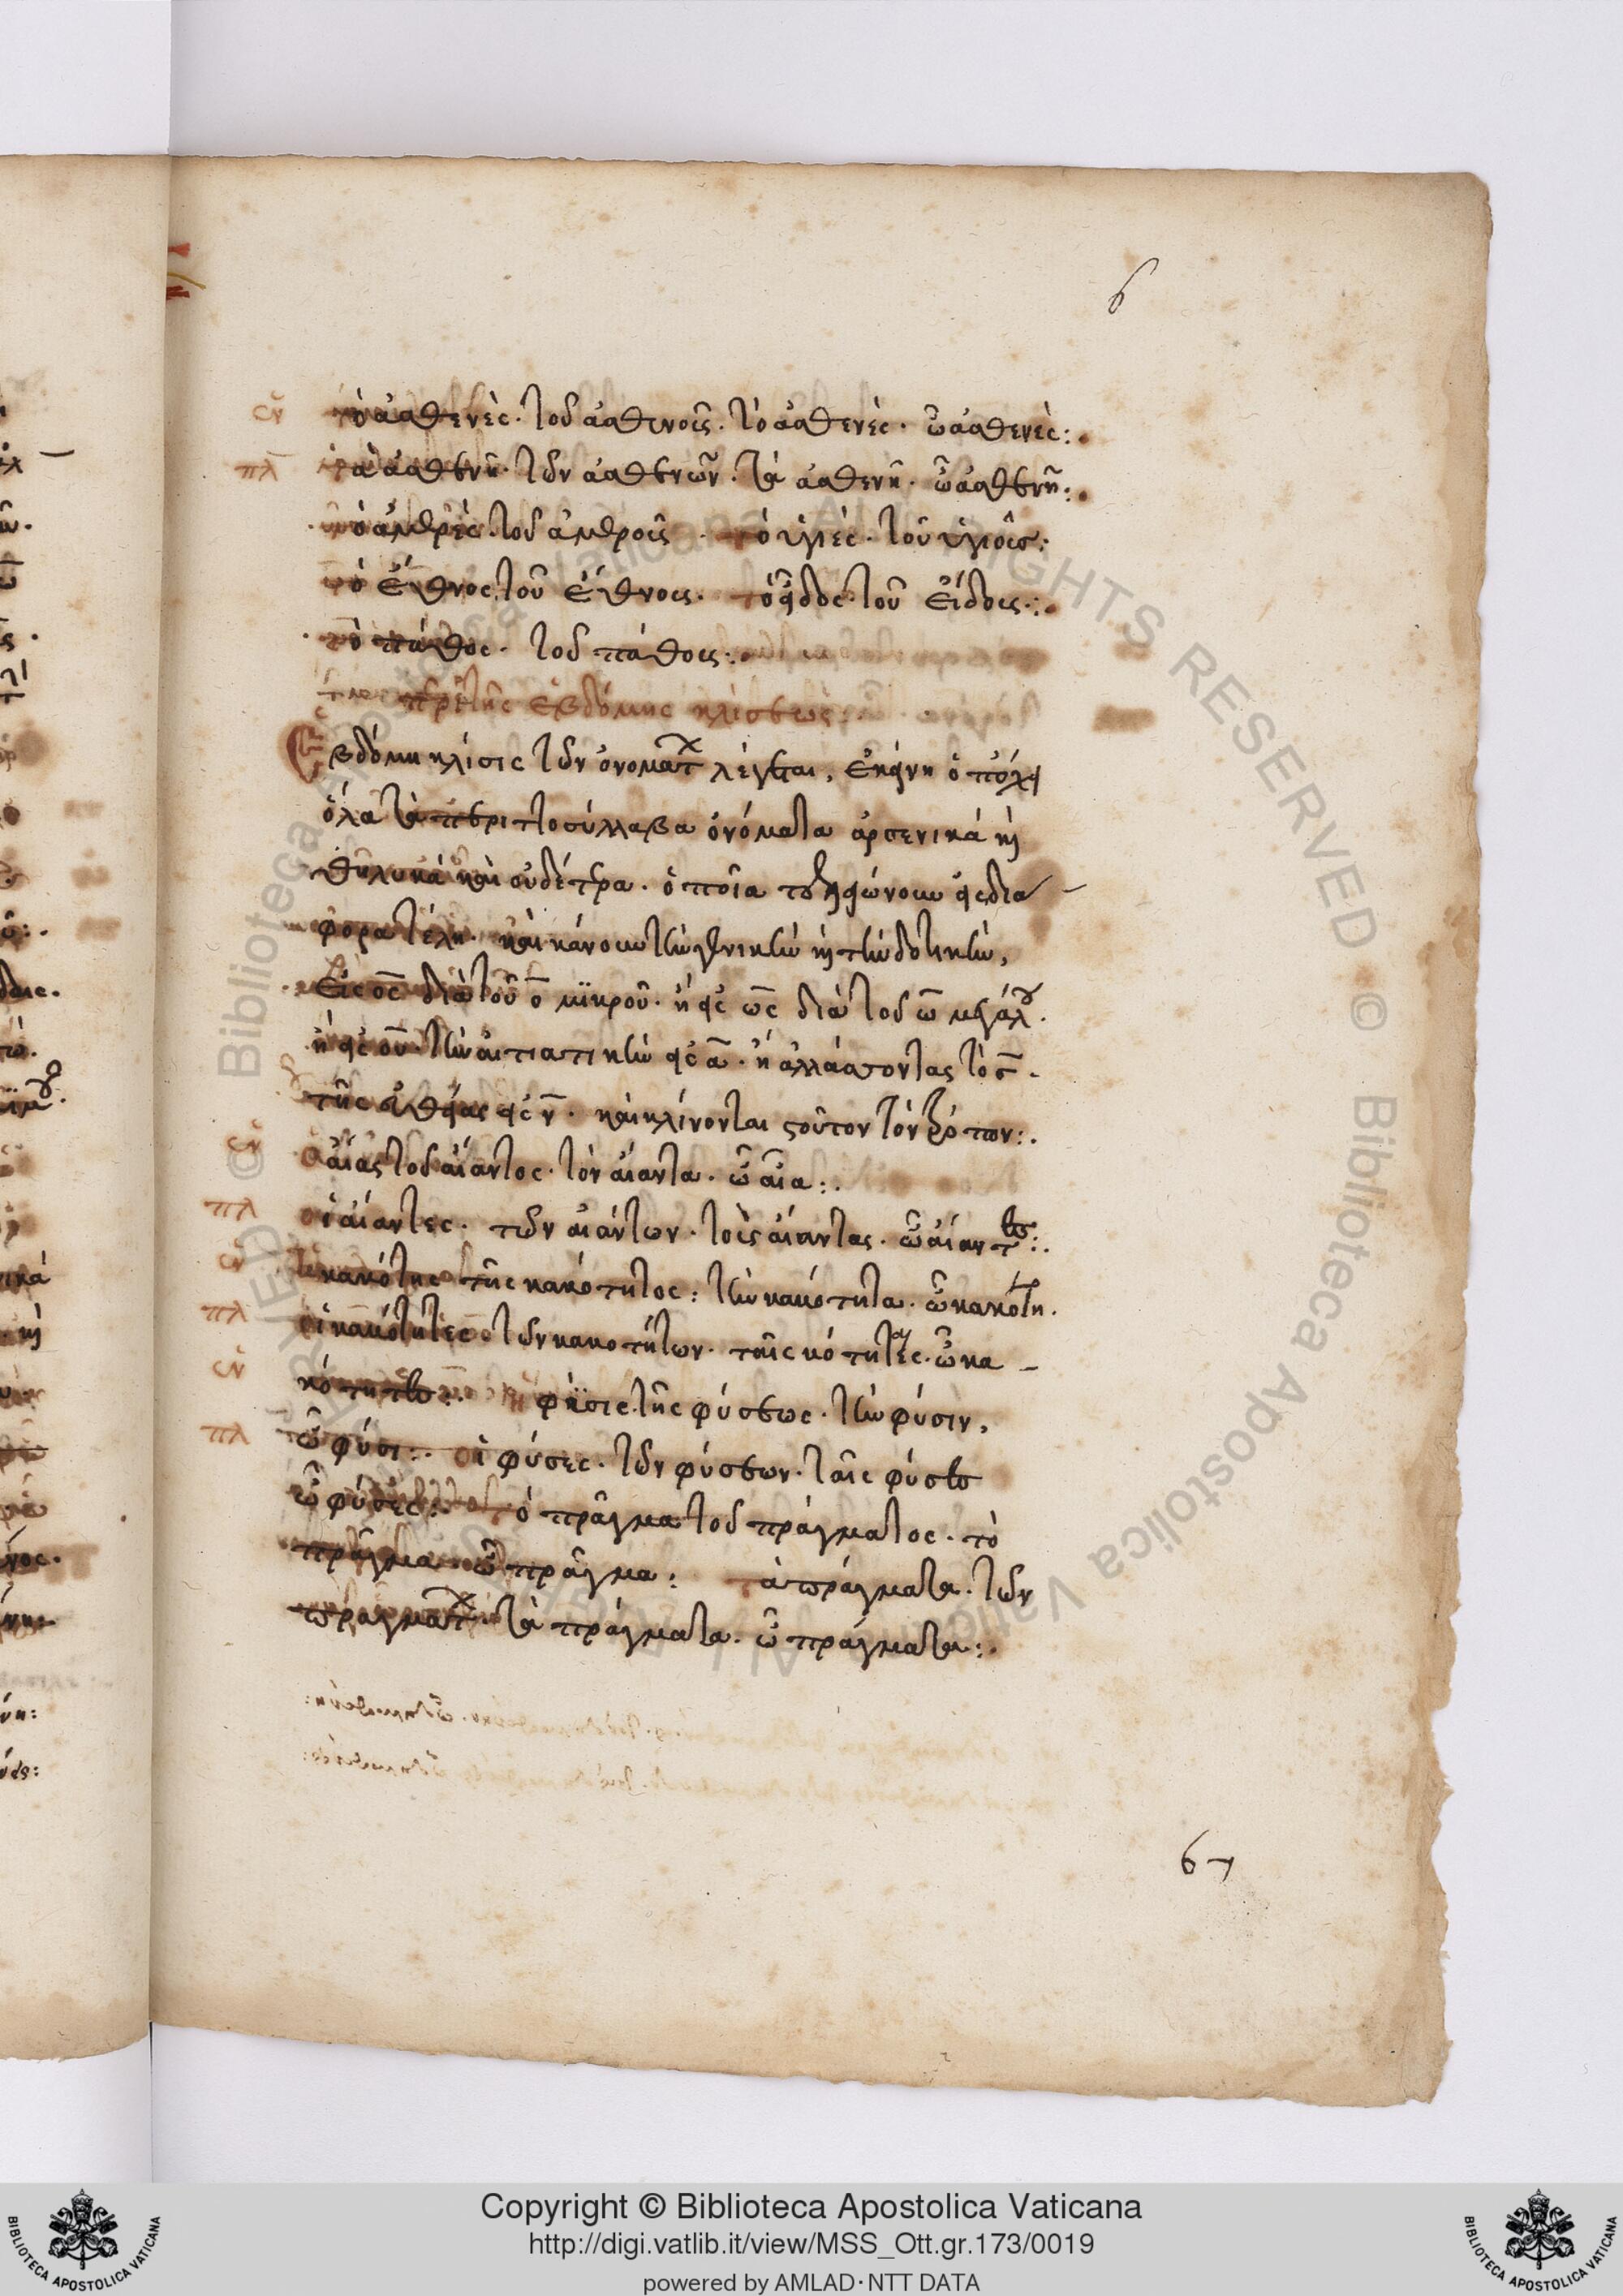 6
ἑν τὸ ἀσθενὲς· τοῦ ἀσθενοῦς· τὸ ἀσθενὲς· ὦ ἀσθενὲς:·
πλ τὰ ἀσθενῆ· τῶν ἀσθενῶν· τὰ ἀσθενῆ· ὦ ἀσθενῆ:·
τοῦ τὸ ὑγιὲς· τοῦ ὑγιοῦς:
τὸ ἔθνος τοῦ ἔθνους· τὸ εἶδος· τοῦ εἴδους:·
τὸ πάθος· τοῦ πάθους:·
περὶ τῆς ἑβδόμης κλίσεως:
Ἑβδόμη κλίσις τῶν ὀνομάτ λέγεται, ἐκείνη ὁποῦ ἔχει
ὅλα τὰ περιττοσύλλαβα ὀνόματα ἀρσενικά κὶ
θηλυκά καὶ οὐδέτρα· ὁποῖα εἰς δια
φορα τέλη· καὶ κάνουν τὴν γενικὴν κὶ τὴν δοτικὴν,
εἰς ος διὰ τοῦ ο μικροῦ· ἢ εἰς ως διὰ τοῦ ω μεγάλου·
ἢ εἰς ου· τὴν αἰτιατικὴν εἰς α· ἢ ἀλλάσσοντας τὸ ς·
τῆς εὐθείας εἰς ν· καὶ κλίνονται τοῦτον τὸν τρόπον:·
ἑν ὁ αἴας τοῦ αἴαντος· τὸν αἴαντα· ὦ αἶα:·
πλ οἱ αἴαντες· τῶν αἰάντων· τοὺς αἴαντας· ὦ αἴαντες:·
ἑν ἡ κακότης τῆς κακότητος: τὴν κακότητα· ὦ κακότη·
πλ αἱ κακότητες τῶν κακοτήτων· ταῖς κότητες· ὦ κα-
ἑν κότητες:· ἡ φύσις τῆς φύσεως· τὴν φύσιν,
πλ ὦ φύσι:· αἱ φύσες· τῶν φύσεων· ταῖς φύσες
ὦ φύσες:· τὸ πρᾶγμα τοῦ πράγματος· τὸ
πρᾶγμα· ὦ πρᾶγμα: τὰ πράγματα· τῶν
πραγμάτ· τὰ πράγματα· ὦ πράγματα:·
6
Copyright © Biblioteca Apostolica Vaticana
http://digi.vatlib.it/view/MSS_Ott.gr.173/0019
powered by AMLAD·NTT DATA
BIBLIOTECA APOSTOLICA VATICANA
BIBLIOTECA APOSTOLICA VATICANA